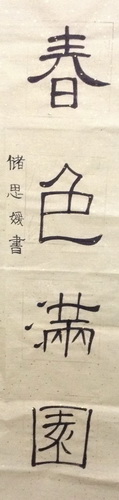 春色滿園
储思媛書